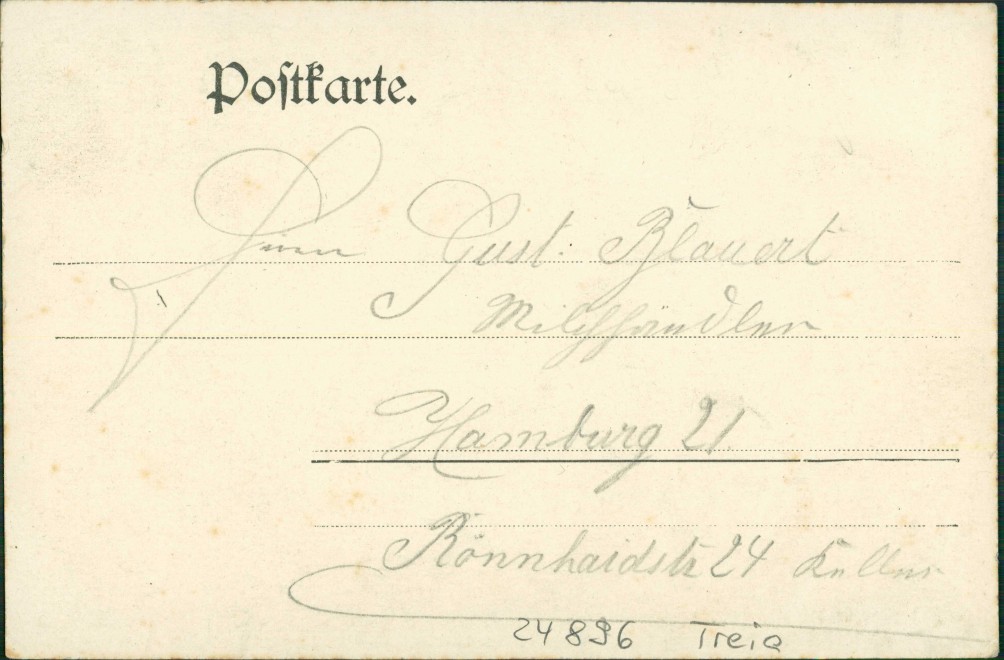 Postkarte.
Herrn Gust. Blauert
Milchhändler
Hamburg 21.
Rönnhaidstr 24 Keller
24896 Treia